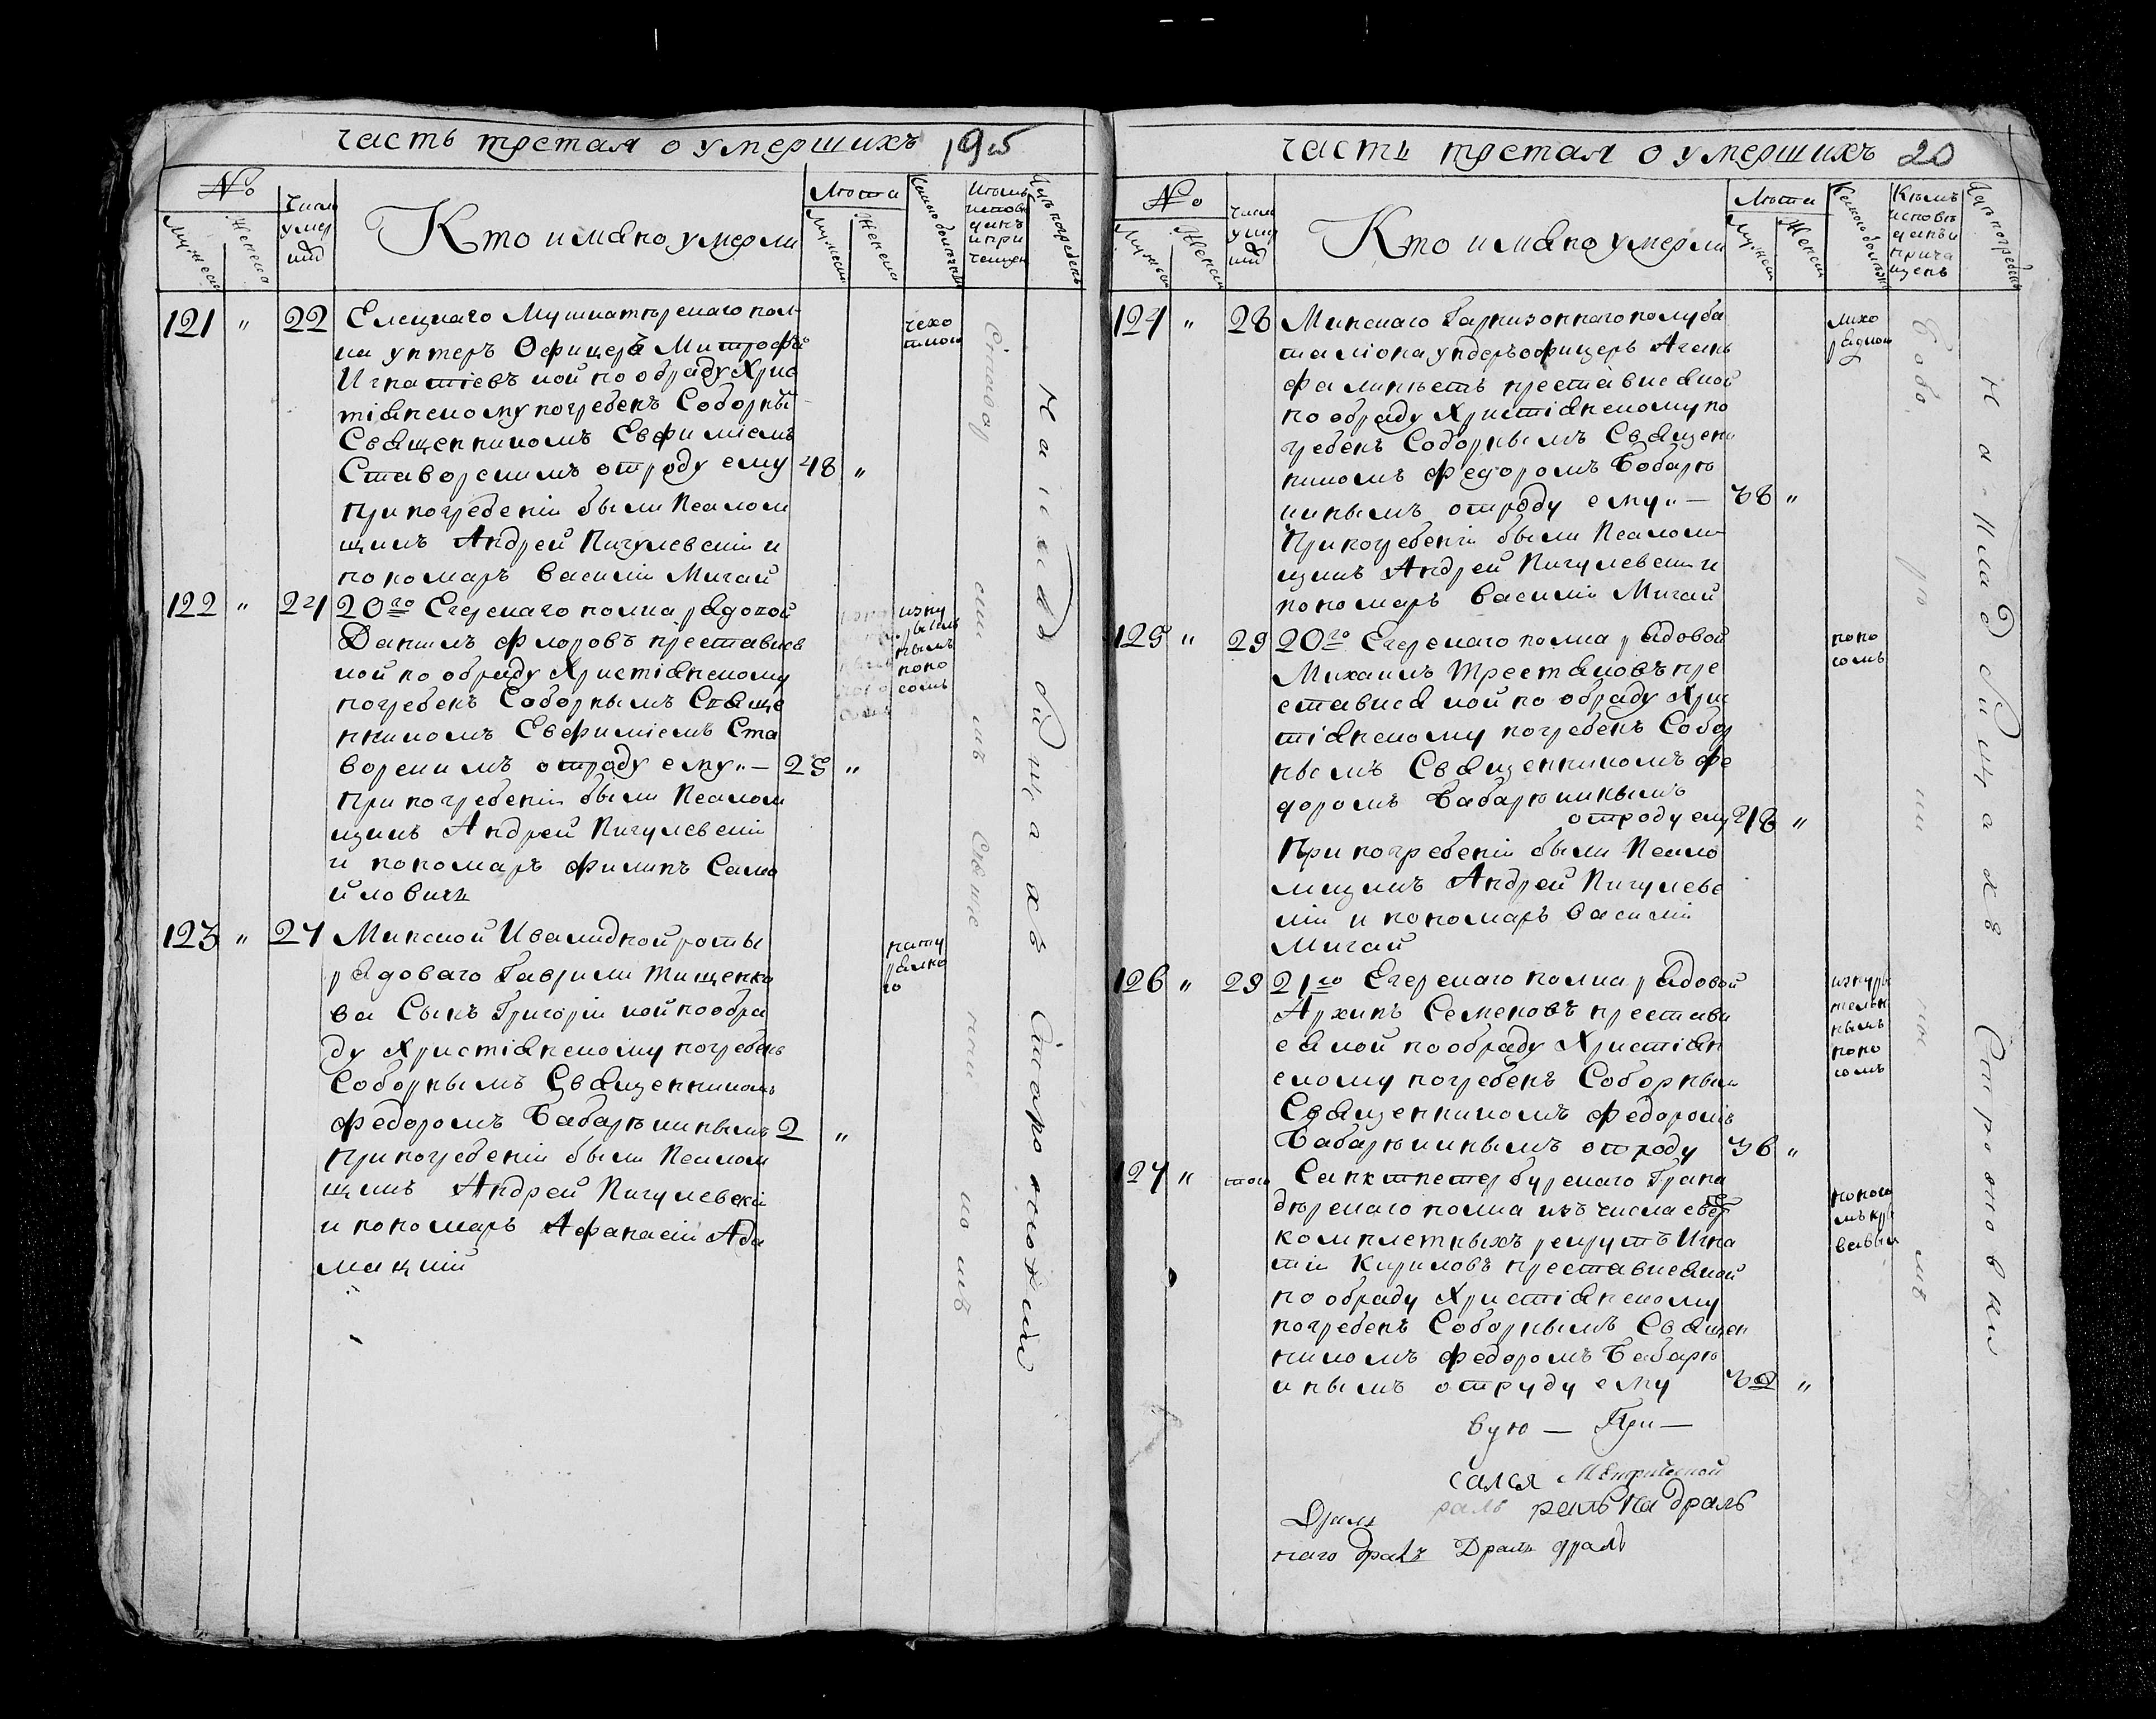 часть третая о умершихъ 195
№
Мужеск
Женска
Число
умер
ший
Кто имѧно умерли
Лѣта
Мужеск
Женска
Какою болѣзнію
Кѣмъ
исповѣ
данъ
и при
чащен
Где погребенъ
121 " 22 Елецкаго Мушкатерскаго пол
ка унтеръ Офицеръ Митрофа
Игнатіевъ кой по обряду Хрис
тіѧнскому погребенъ Соборны
Свѧщенникомъ Евфиміемъ
Ставорскимъ отроду ему 48 "
При погребеніи были Псалом
щикъ Андрей Пигулевскіи и
пономарь Василіи Мигай
чехо
ткою
122 " 24 20го Егерскаго полка рѧдовой
Данилъ Флоровъ преставис
кой по обряду Христіѧнскому
погребенъ Соборнымъ Свѧще
нникомъ Евфиміемъ Ста
ворскимъ отроду ему — 25 "
При погребеніи были Псалом
щикъ Андрей Пигулевскіи
и пономарь Филипъ Само
йловичъ
изну
рытель
нымъ
поно
сомъ
123 " 27 Минской Ивалидной роты
рѧдоваго Гаврили Тищенко
ва Сынъ Григоріи кой по обря
ду Христіѧнскому погребенъ
Соборнымъ Свѧщенникомъ
Федоромъ Бабарыкинымъ 2 "
При погребеніи были Псалом
щикъ Андрей Пигулевскіи
и пономарь Афанасіи Ада
мицкіи
нату
рално
ю
Ставорскимъ
На кладбищахъ Сторожовки
часть третая о умершихъ 20
№
Мужеск
Женска
Число
умер
ший
Кто имѧно умерли
Лѣта
Мужеск
Женска
Какою болѣзнію
Кѣмъ
исповѣ
данъ и
прича
щенъ
Где погребенъ
124 " 28 Минскаго Гарнизоннаго полуба
таліона ундеръофицеръ
престависѧ кой
по обряду Христіѧнскому по
гребенъ Соборнымъ Свѧщен
никомъ Федоромъ Бобары
кинымъ отроду ему — 38 "
При погребеніи были Псалом
щикъ Андрей Пигулевскіи и
пономарь Василіи Мигай
лихо
рѧдкою
125 " 29 20го Егерскаго полка рѧдовой
Михаилъ Трестѧновъ пре
стависѧ кой по обряду Хри
стіѧнскому погребенъ Собор
нымъ Свѧщенникомъ Фе
доромъ Бабарыкинымъ
отроду ему 48 "
При погребеніи были Псало
мщикъ Андрей Пигулевс
кіи и пономарь Василіи
Мигай
поно
сомъ
126 " 29 21го Егерскаго полка рѧдовой
Архипъ Семеновъ престави
сѧ кой по обряду Христіѧн
скому погребенъ Соборным
Свѧщенникомъ Федоромъ
Бабарыкинымъ отроду 36 "
изнуры
тельн
нымъ
поно
сомъ
127 " того Санктпетербурскаго Грана
дерскаго полка изъ числа сверх
комплетныхъ рекрутъ Игна
тіи Кириловъ престависѧ кой
по обряду Христіѧнскому
погребенъ Соборнымъ Свѧщен
никомъ Федоромъ Бабары
кнымъ отруду ему 32 "
поносо
мъ кро
вавым
На Кладбищахъ Сторожовки
вую — При —
сался Метрической